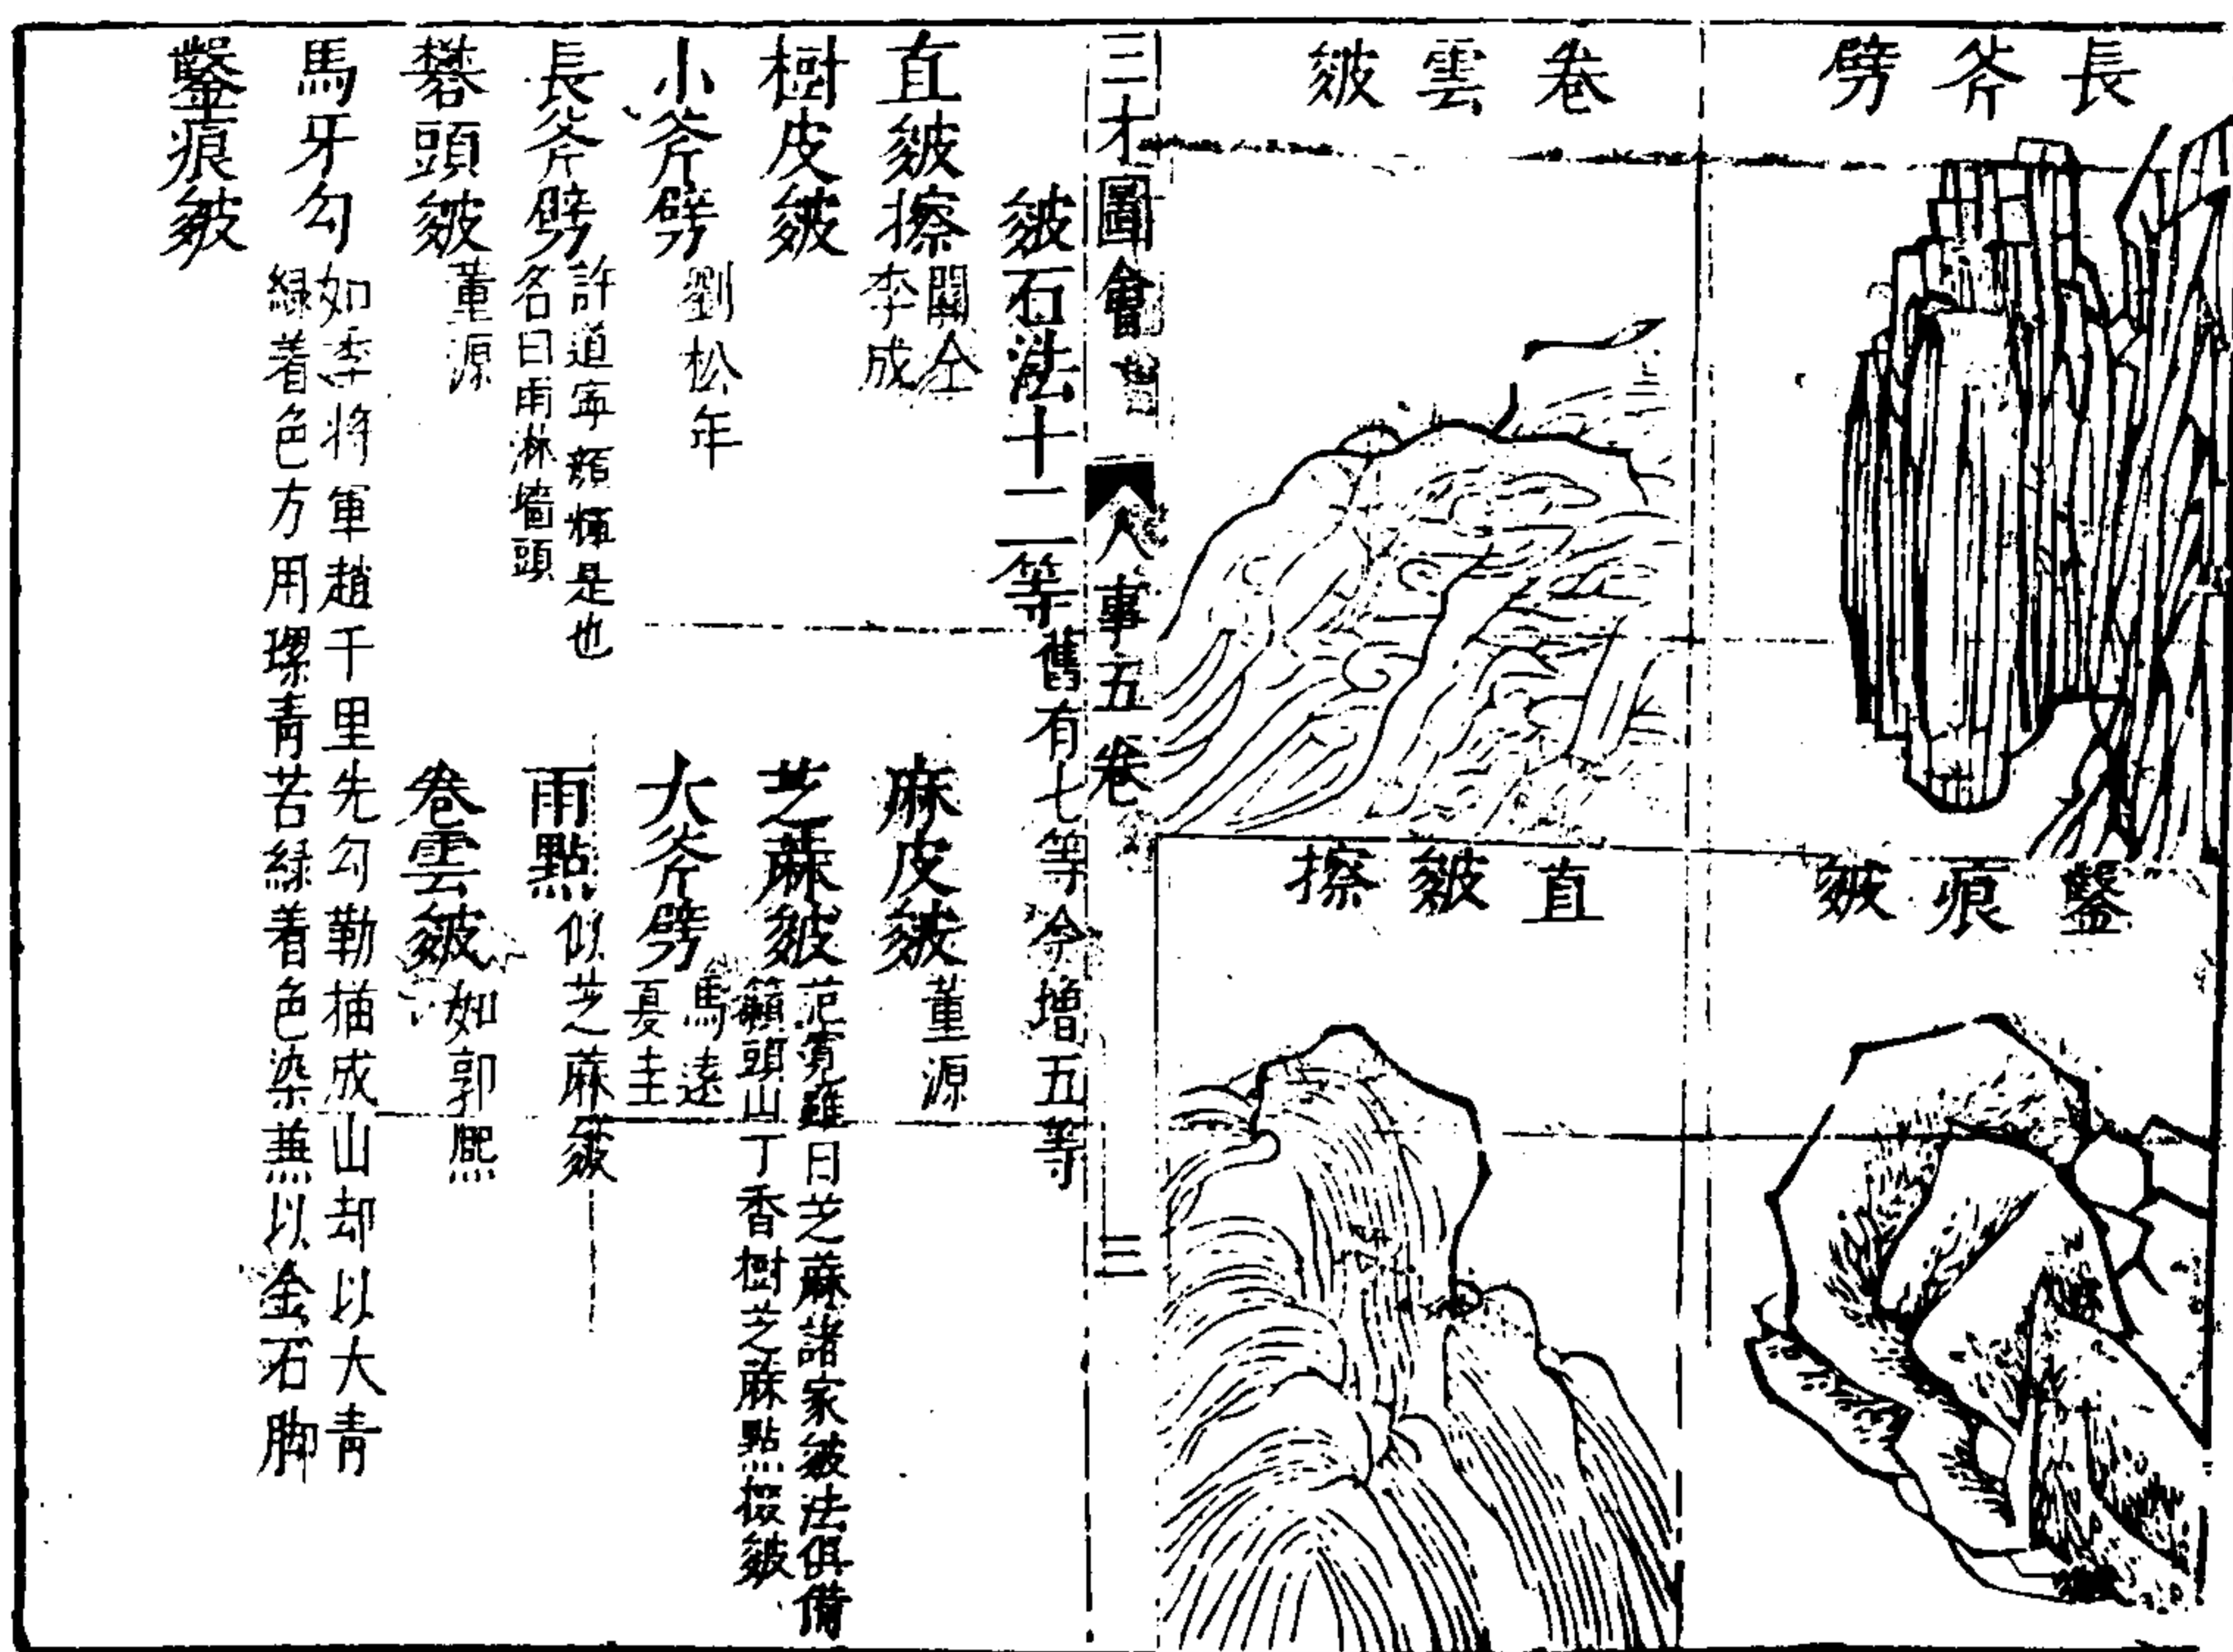 長斧劈
鑿痕皴
卷雲皴
直皴擦
三才圖會
人事五卷
三
皴石法十二等舊有七等今增五等
直皴擦關仝
李成
麻皮皴董源
樹皮皴
芝蔴皴范寬雖曰芝蔴諸家皴法俱備
籟頭山丁香樹芝蔴點掇皴
小斧劈劉松年
大斧劈馬遠
夏圭
長斧劈許道寧顏輝是也
名曰雨淋墻頭
雨點似芝蔴皴
礬頭皴董源
卷雲皴如郭熈
馬牙勾如李將軍趙千里先勾勒描成山却以大青
緑着色方用螺青苦緑着色染兼以金石脚
鑿痕皴